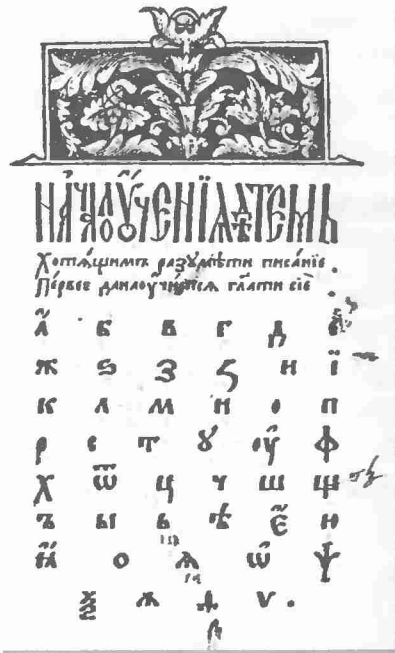 НАЧАЛОУЧЕНЇѦДѢТЕМЪ
Хотѧщимъ разꙋмѣти писанїе .
Первее данаоучитсѧ гл҃ати сїе .
а б в г д е
ж ѕ з ꙁ и ї
к л м н о п
р с т ꙋ оу ф
х ѿ ц ч ш щ
ъ ы ь ѣ є ю
ꙗ о ѧ ѡ ѱ
ѯ ѧ ѵ .